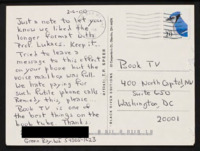 Just a note to let you
know we liked the
longer format with
Keep it.
Tried to leave a
message to this effect
on your phone but the
voice mailbox was full.
We hate paying for
such futile phone calls
Remedy this, please.
Book TV is one of
the best things on the
boob tube. Thanks,
Book TV
400 North Capitol, NW
Suite 650
Washington, DC
20001